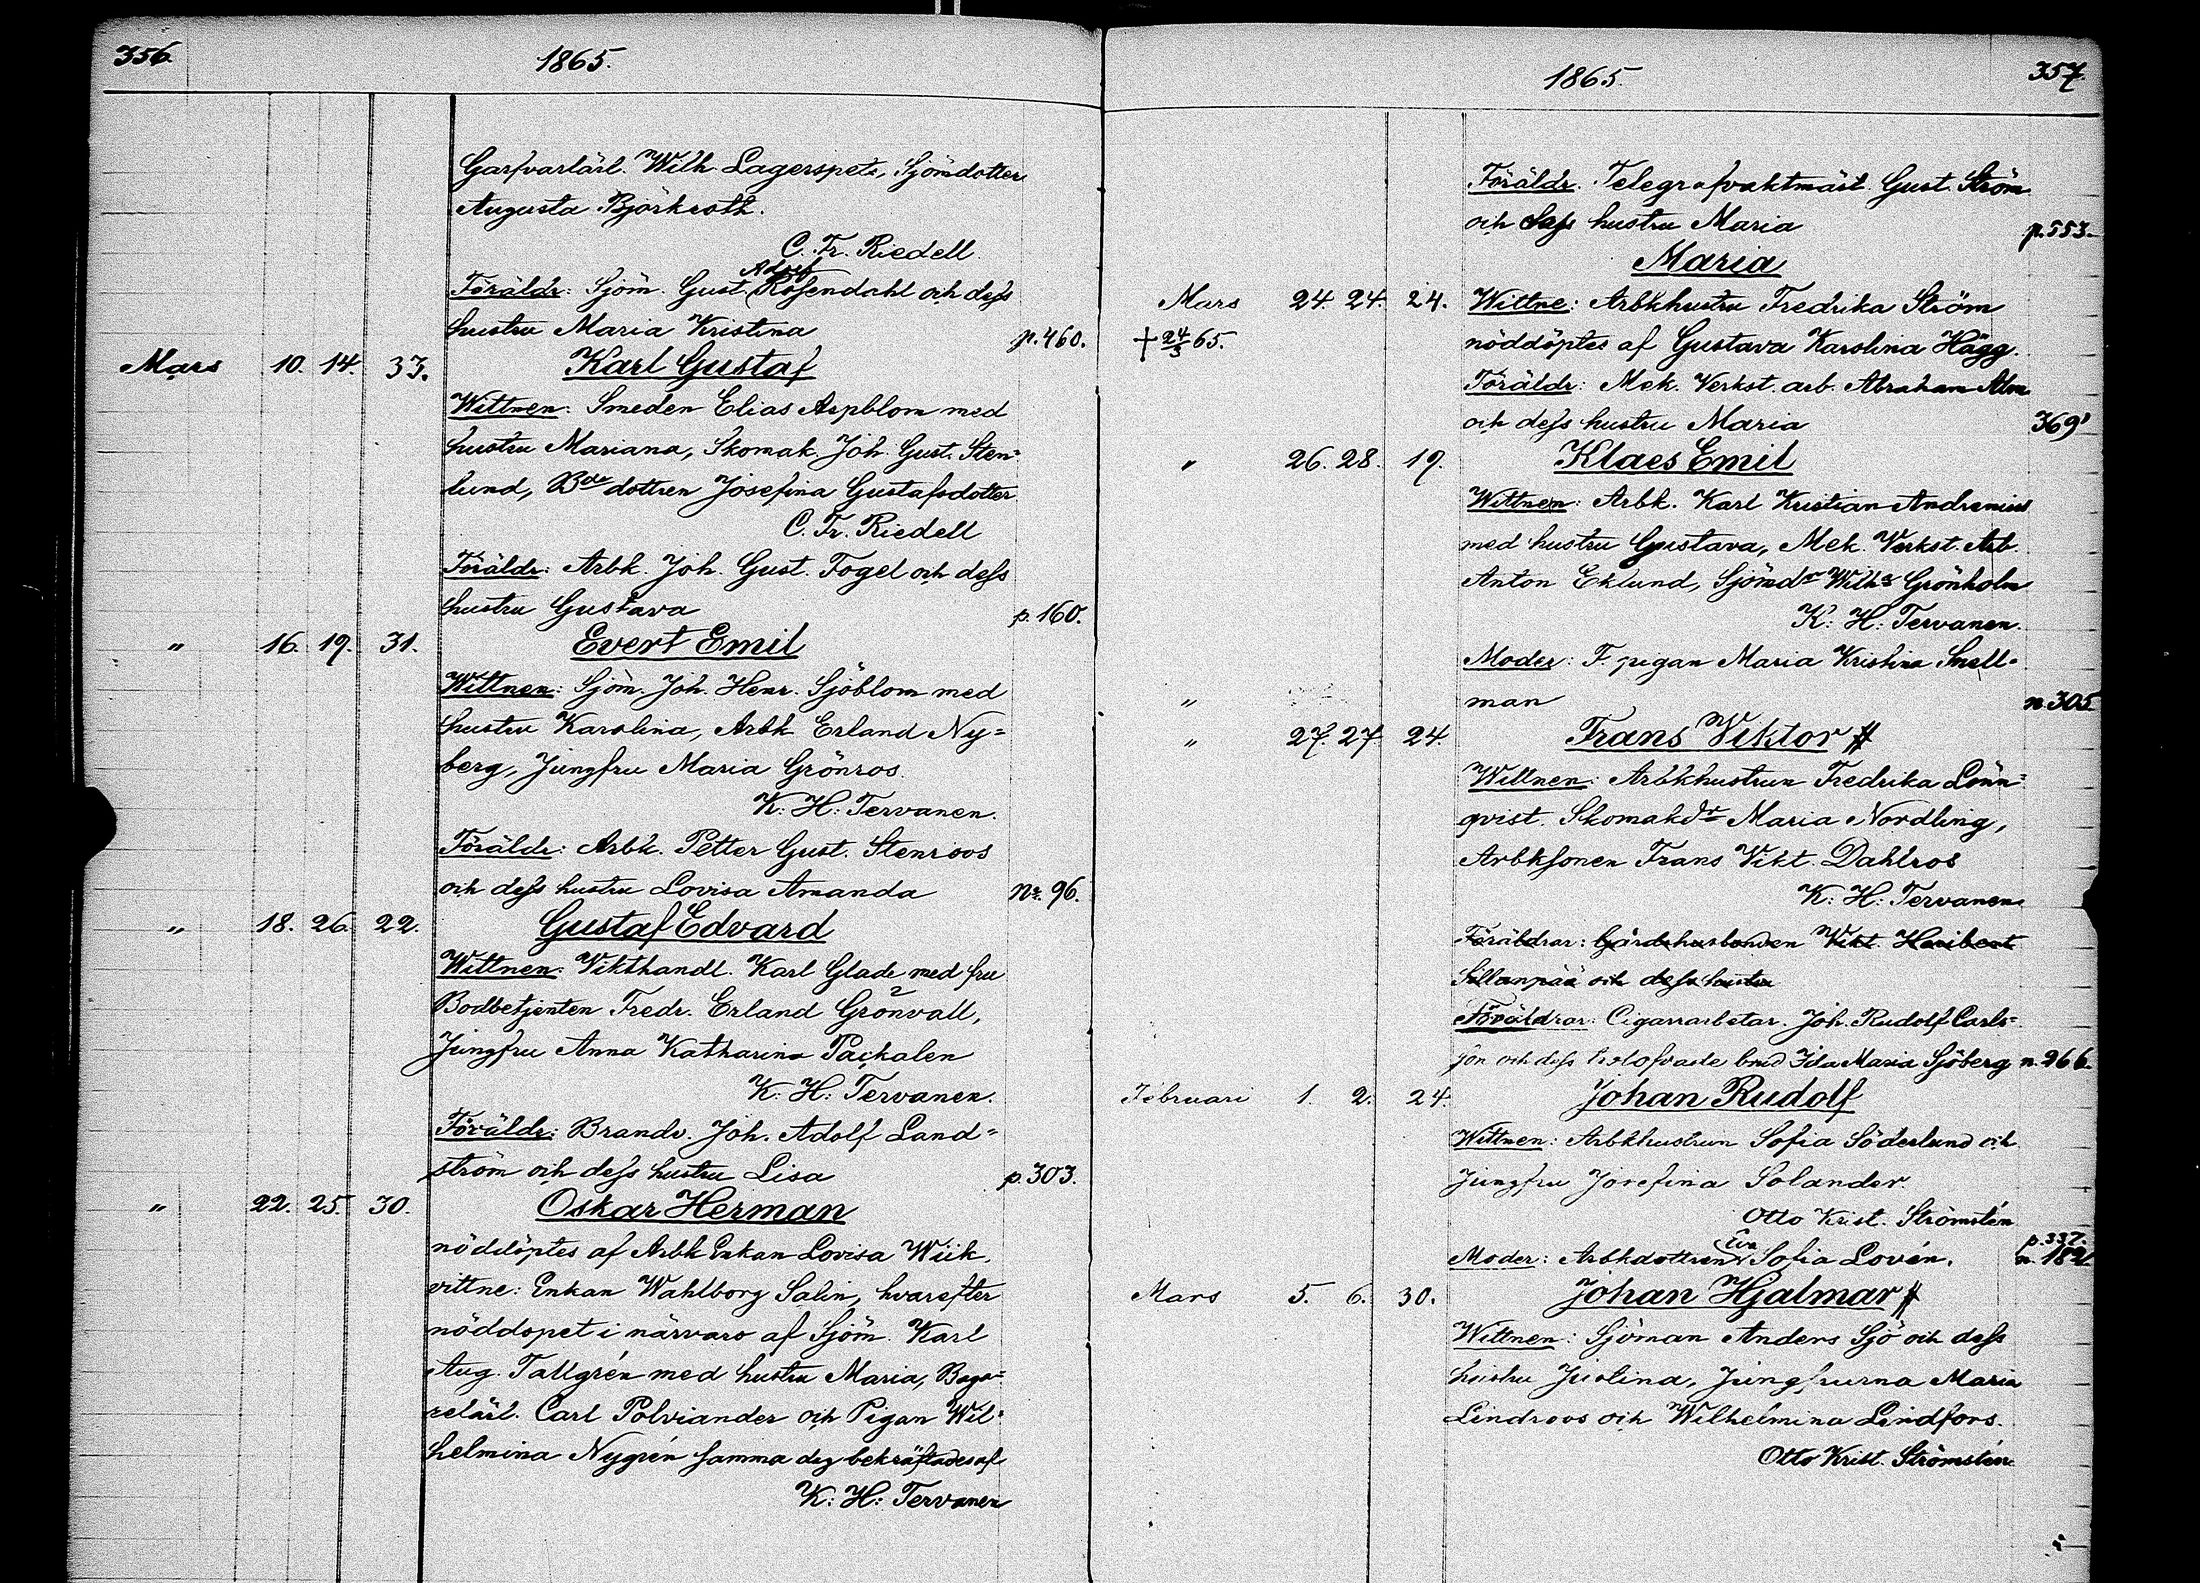 356.
1865.
Garfvarlärl. Wilh. Lagerspets, Sjömdotter
Augusta Björkroth.
C. Fr. Riedell
Adolf
Föräldr: Sjöm. Gust. Rosendahl och dess
hustru Maria Kristina p. 460.
Mars 10. 14. 33. Karl Gustaf
Wittnen: Smeden Elias Aspblom med
hustru Mariana, Skomak. Joh. Gust. Sten=
lund, Bde dottren Josefina Gustafsdotter
C. Fr. Riedell
Föräldr: Arbk. Joh. Gust. Fogel och dess
hustru Gustava p. 160.
" 16. 19. 31. Evert Emil
Wittnen: Sjöm. Joh. Henr. Sjöblom med
hustru Karolina, Arbk Erland Ny=
berg, Jungfru Maria Grönros.
K: H: Tervanen.
Föräldr: Arbk. Petter Gust. Stenroos
och dess hustru Lovisa Amanda No. 96.
" 18. 26. 22. Gustaf Edvard
Wittnen: Vikthandl. Karl Glade med fru
Bodbetjenten Fredr. Erland Grönvall,
Jungfru Anna Katharina Packalen
K: H: Tervanen.
Föräldr: Brandv. Joh. Adolf Land=
ström och dess hustru Lisa p. 303.
" 22. 25. 30. Oskar Herman
nöddöptes af Arbk Enkan Lovisa Wiik,
vittne: Enkan Wahlborg Salin, hvarefter
nöddopet i närvaro af Sjöm. Karl
Aug. Tallgrén med hustru Maria, Baga=
relärl. Carl Polviander och Pigan Wil=
helmina Nygrén samma dag bekräftades af
K: H: Tervanen
1865.
357.
Föräldr. Telegrafvaktmäst. Gust. Ström
och dess hustru Maria p. 553.
Maria
Mars 24. 24. 24. Wittne: Arbkhustru Fredrika Ström
+ 24/3 65. nöddöptes af Gustava Karolina Hägg.
Föräldr: Mek. Verkst. arb. Abraham Alm
och dess hustru Maria 369
" 26. 28. 19. Klaes Emil
Wittnen: Arbk. Karl Kristian Andrenius
med hustru Gustava, Mek. Verkst. Arb.
Anton Eklund, Sjömdr Wilha Grönholm
K: H: Tervanen.
Moder: F. pigan Maria Kristina Snell=
" man n. 305
" 27. 27. 24. Frans Viktor #
Wittnen: Arbkhustrun Fredrika Lönn=
qvist. Skomakdr Maria Nordling,
Arbksonen Frans Vikt. Dahlros
K: H: Tervanen.
Föräldrar: Gårdshusbonden Vikt. Heribert
Sillanpää och dess hustru
Föräldrar: Cigarrarbetar. Joh. Rudolf Carls=
son och dess trolofvade brud Ida Maria Sjöberg n. 266.
Februari 1. 2. 24. Johan Rudolf
Wittnen: Arbkhustrun Sofia Söderlund och
Jungfru Josefina Solander.
Otto Krist. Strömstén
p. 337.
Moder: Arbkdottren Eva Sofia Lovén. n. 182
Mars 5. 6. 30. Johan Hjalmar #
Wittnen: Sjöman Anders Sjö och dess
hustru Justina, Jungfrurna Maria
Lindroos och Wilhelmina Lindfors.
Otto Krist. Strömstén